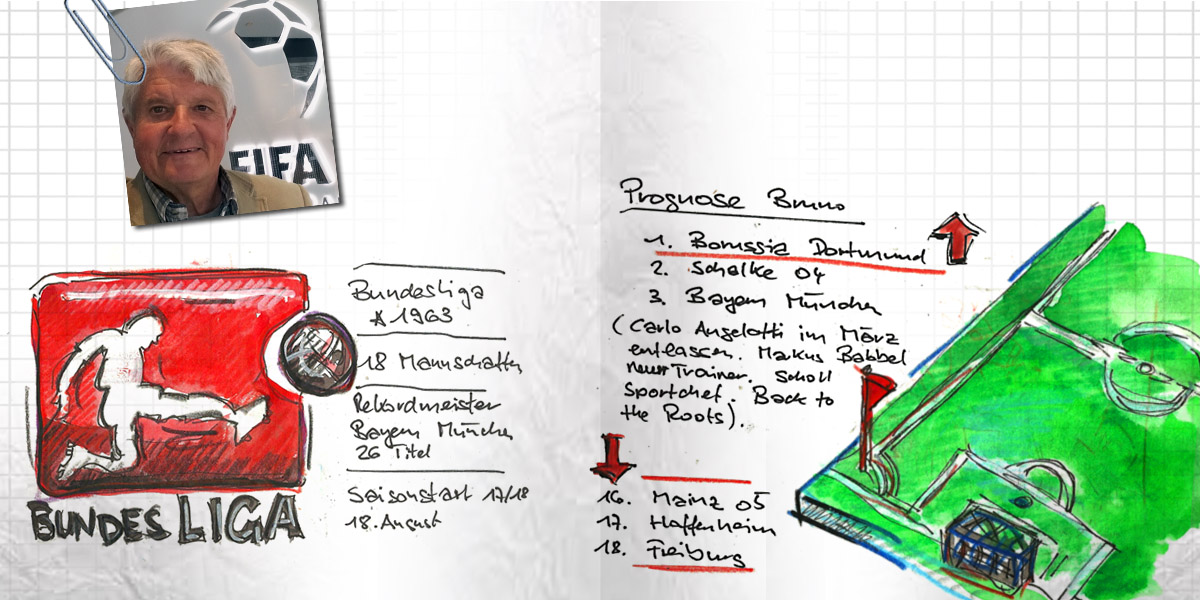 FIFA
BUNDESLIGA
Bundesliga
* 1963
18 Mannschaften
Rekordmeister
Bayern München
26 Titel
Saisonstart 17/18
18. August
Prognose Bruno
1. Borussia Dortmund
2. Schalke 04
3. Bayern München
(Carlo Angelotti im März
entlassen. Markus Babbel
neuer Trainer. Scholl
Sportchef. Back to
the Roots).
16. Mainz 05
17. Hoffenheim
18. Freiburg